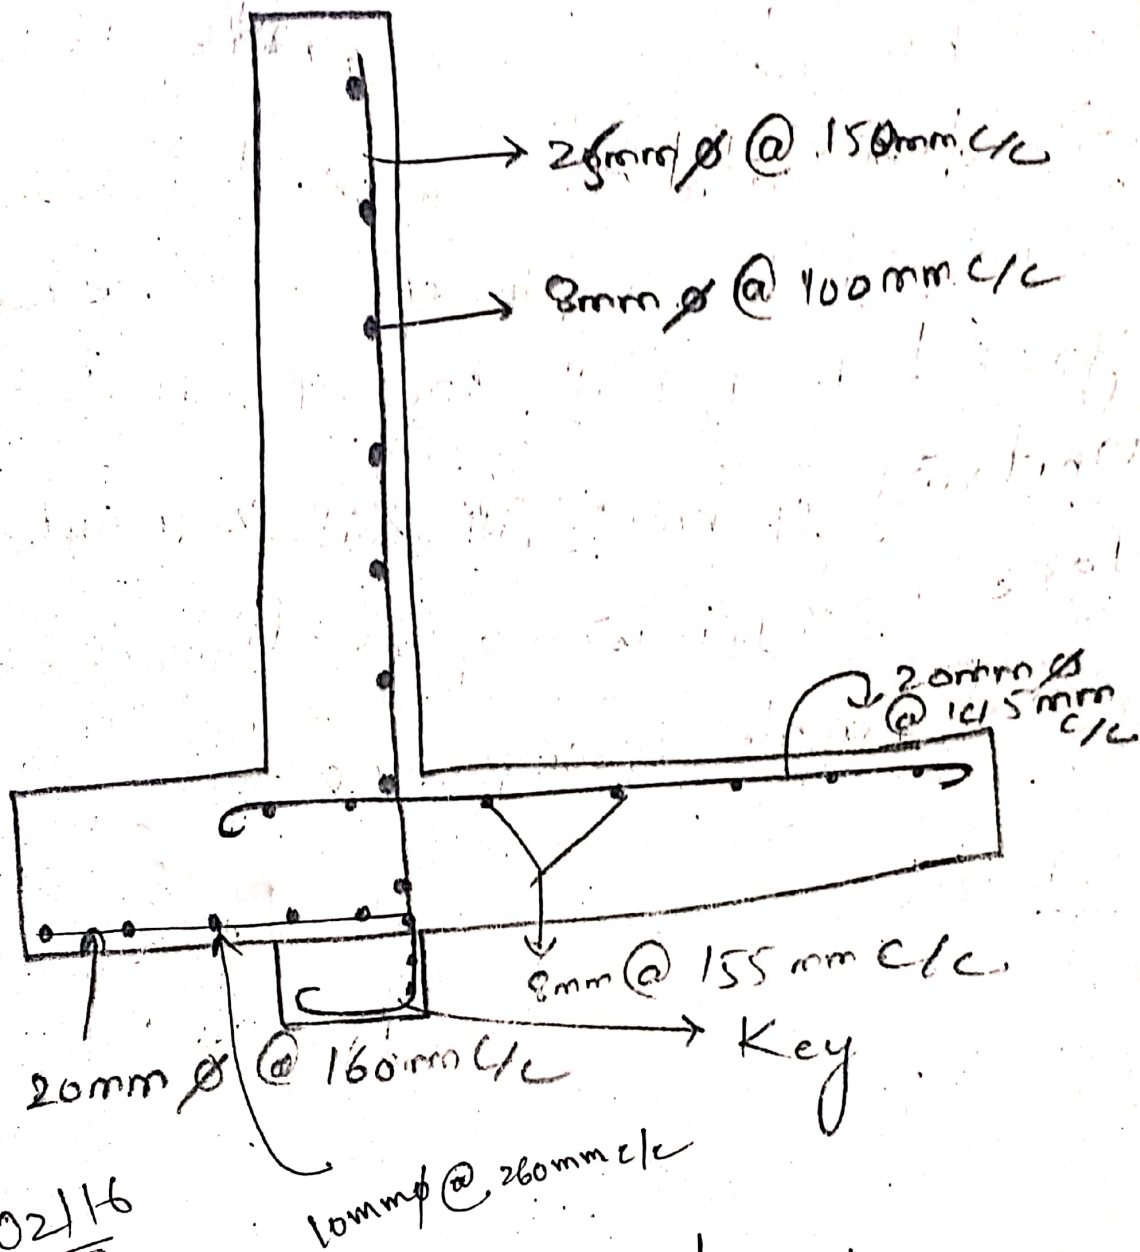 25mm ø @ 150mm c/c
8mm ø @ 100mm c/c
20mm ø
@ 145 mm
c/c
8mm @ 155 mm c/c.
Key
20mm ø @ 160mm c/c
10mmø @ 260mm c/c
02/16